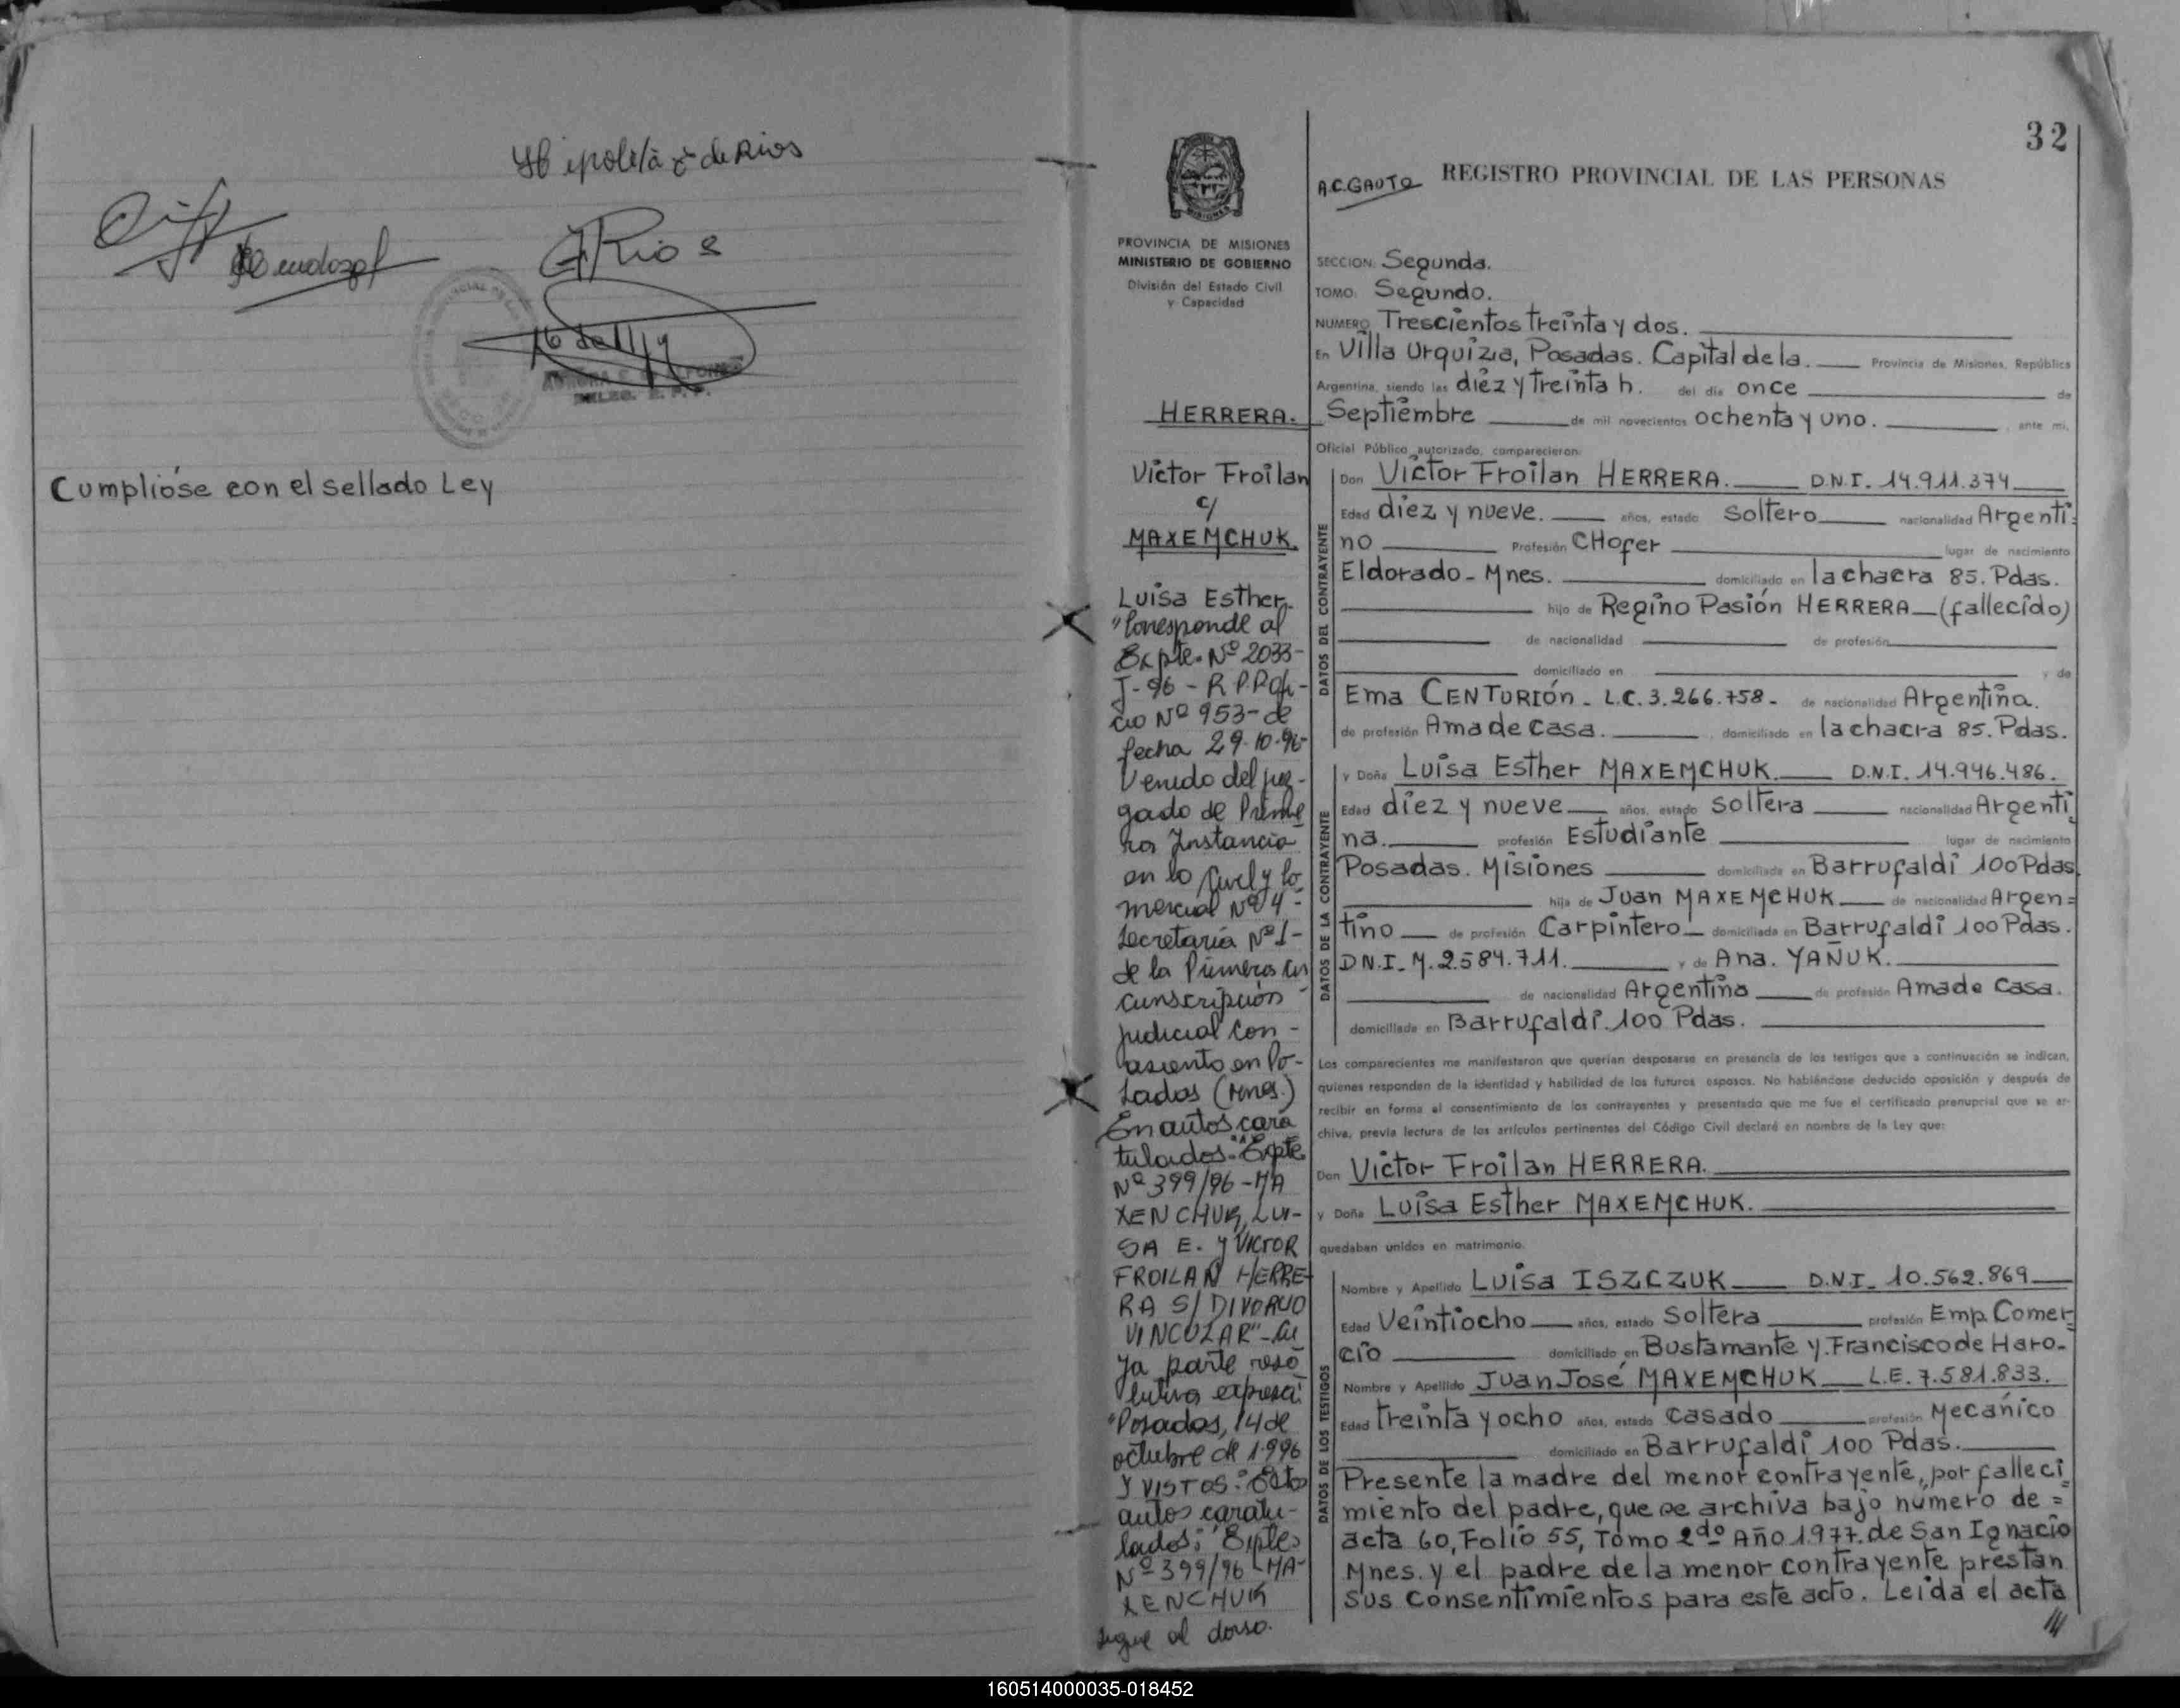 Hipolita C de Rios
Rios
Cumplióse con el sellado Ley
32
A.C. GAUTO
REGISTRO PROVINCIAL DE LAS PERSONAS
MISIONES
PROVINCIA DE MISIONES
MINISTERIO DE GOBIERNO
División del Estado Civil
y Capacidad
HERRERA.
Victor Froilan
c/
MAXEMCHUK.
Luisa Esther.
"Corresponde al
Expte. Nº 2033-
J-96 - R.P.P. Ofi-
cio Nº 953- de
fecha 29-10-96-
Venido del juz-
gado de Prime
ra Instancia
en lo Civil y Co-
mercial Nº 4-
Secretaría Nº 1-
de la Primera Cir
cunscripción
judicial con-
asiento en Po-
sadas (Mnes.)
En autos cara
tulados: "Expte
Nº 399/96 - MA
XENCHUK, LUI-
SA E. y VICTOR
FROILAN HERRE-
RA S/ DIVORCIO
VINCULAR" - Cu
ya parte reso
lutiva expresa:
"Posadas, 14 de
octubre de 1.996
Y VISTOS: Estos
autos caratu-
lados: "Expte
Nº 399/96 - MA-
XENCHUK
sigue al dorso.
SECCION: Segunda.
TOMO: Segundo.
NUMERO Trescientos treinta y dos.
En Villa Urquiza, Posadas. Capital de la. Provincia de Misiones, República
Argentina, siendo las diez y treinta h. del día once de
Septiembre de mil novecientos ochenta y uno. , ante mí,
Oficial Público autorizado, comparecieron:
DATOS DEL CONTRAYENTE
Don Victor Froilan HERRERA. D.N.I. 14.911.374
Edad diez y nueve. años, estado soltero nacionalidad Argenti=
no Profesión CHofer lugar de nacimiento
Eldorado - Mnes. domiciliado en la chacra 85. Pdas.
hijo de Regino Pasión HERRERA (fallecido)
de nacionalidad de profesión
domiciliado en y de
Ema CENTURIÓN - L.C. 3.266.758 - de nacionalidad Argentina.
de profesión Ama de Casa. , domiciliada en la chacra 85. Pdas.
DATOS DE LA CONTRAYENTE
y Doña Luisa Esther MAXEMCHUK. D.N.I. 14.946.486.
Edad diez y nueve años, estado soltera nacionalidad Argenti=
na. profesión Estudiante lugar de nacimiento
Posadas. Misiones domiciliada en Barrufaldi 100 Pdas.
hija de Juan MAXEMCHUK de nacionalidad Argen=
tino de profesión Carpintero domiciliado en Barrufaldi 100 Pdas.
D.N.I. M. 2.584.711. y de Ana. YAÑUK.
de nacionalidad Argentina de profesión Ama de Casa.
domiciliada en Barrufaldi. 100 Pdas.
Los comparecientes me manifestaron que querían desposarse en presencia de los testigos que a continuación se indican,
quienes responden de la identidad y habilidad de los futuros esposos. No habiéndose deducido oposición y después de
recibir en forma el consentimiento de los contrayentes y presentado que me fue el certificado prenupcial que se ar-
chiva, previa lectura de los artículos pertinentes del Código Civil declaré en nombre de la Ley que:
Don Victor Froilan HERRERA.
y Doña Luisa Esther MAXEMCHUK.
quedaban unidos en matrimonio.
DATOS DE LOS TESTIGOS
Nombre y Apellido Luisa ISZCZUK D.N.I. 10.562.869
Edad Veintiocho años, estado Soltera profesión Emp. Comer=
cio domiciliado en Bustamante y. Francisco de Haro.
Nombre y Apellido Juan José MAXEMCHUK L.E. 7.581.833.
Edad treinta y ocho años, estado casado profesión Mecánico
domiciliado en Barrufaldi 100 Pdas.
Presente la madre del menor contrayente, por falleci=
miento del padre, que se archiva bajo número de =
acta 60, Folio 55, Tomo 2do Año 1.977. de San Ignacio
Mnes. y el padre de la menor contrayente prestan
sus consentimientos para este acto. Leida el acta
160514000035-018452